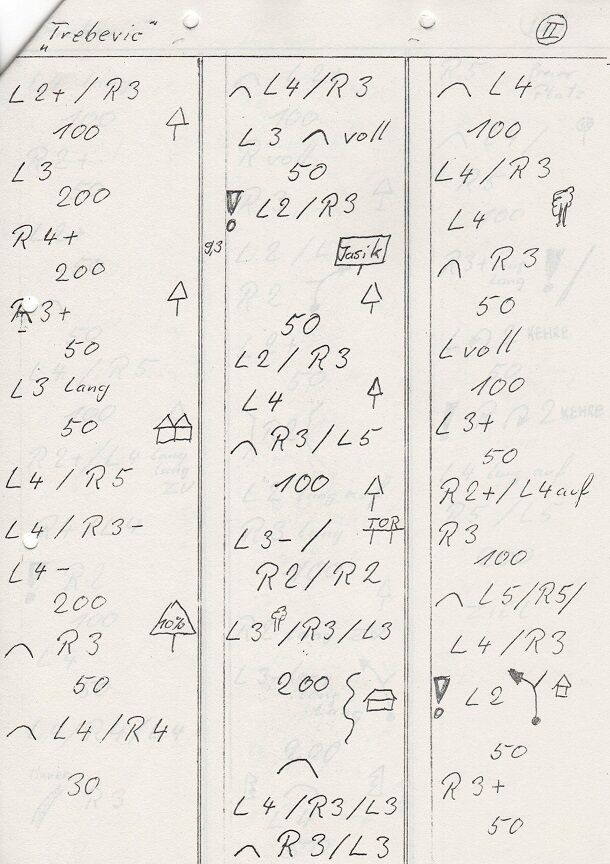 „Trebevic“
II
L2+/R3
100
L3
200
R4+
200
R3+
50
L3 lang
50
L4/R5
L4/R3-
L4-
200
10%
R3
50
L4/R4
30
L4/R3
L3 voll
50
! L2/R3
9,3
Jasik
50
L2/R3
L4
R3/L5
100
TOR
L3-/
R2/R2
L3/R3/L3
200
L4/R3/L3
R3/L3
L4
100
L4/R3
L4
R3
50
L voll
100
L3+
50
R2+/L4 auf
R3
100
L5/R5/
L4/R3
! L2
50
R3+
50